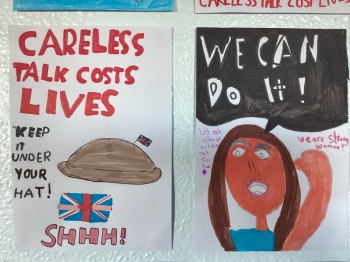 CARELESS TALK COST LIVES
CARELESS
TALK COSTS
LIVES
"KEEP
IT
UNDER
YOUR
HAT!
SHHH!
WE CAN
DO IT!
we are strong
women!